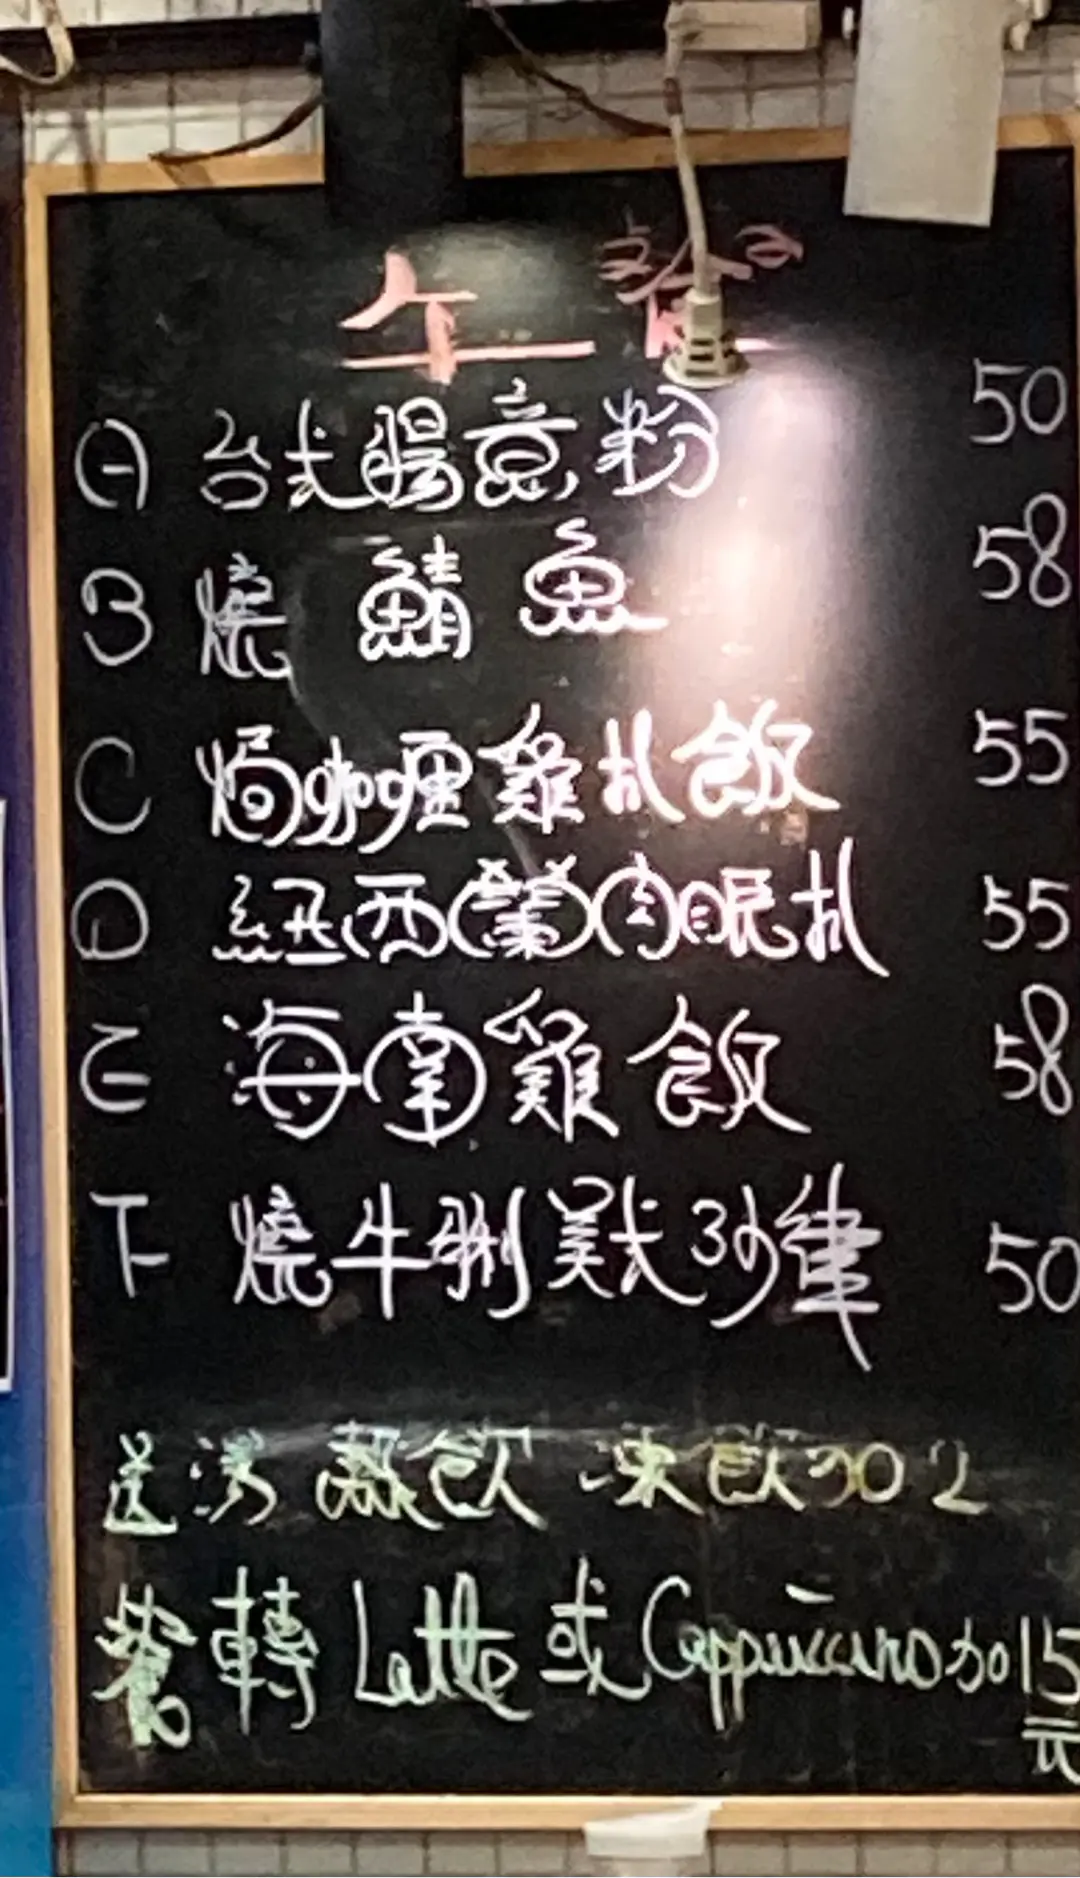 午餐
A 台式腸意粉 50
B 燒鯖魚 58
C 焗咖喱雞扒飯 55
D 紐西蘭肉眼扒 55
E 海南雞飯 58
F 燒牛脷美式沙律 50
送湯 熱飲 凍飲加2
餐轉Latte或Cappuccino加15元